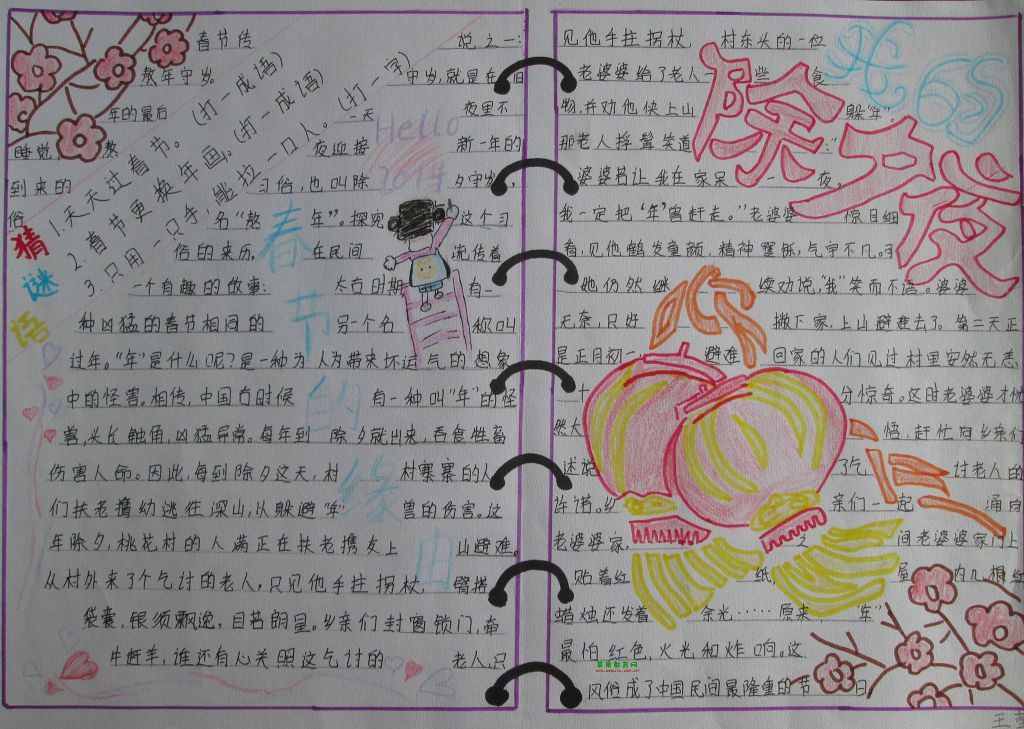 春节传 说之一:
熬年守岁 守岁,就是在旧
年的最后 一天 夜里不
睡觉, 熬 夜迎接 新一年的
到来的 习俗,也叫除 夕守岁,
俗 名“熬 年”。探究 这个习
俗的来历, 在民间 流传着
一个有趣的故事: 太古时期 有一
种凶猛的春节相同的 另一个名 称叫
过年。“年”是什么呢?是一种为人为带来坏运气的想象
中的怪害。相传,中国古时候 有一种叫“年”的怪
兽,头长触角,凶猛异常。每年到 除夕就出来,吞食牲畜
伤害人命。因此,每到除夕这天,村 村寨寨的人
们扶老携幼逃往深山,从躲避“年” 兽的伤害。这
年除夕,桃花村的人满正在扶老携友上 山避难。
从村外来了个乞讨的老人,只见他手拄拐杖, 臂搭
袋囊,银须飘逸,目若朗星。乡亲们封窗锁门,牵
牛赶羊,谁还有心关照这乞讨的 老人。只
猜谜语
1.天天过春节。(打一成语)
2.春节更换年画。(打一成语)
3.只用一只手,能拉一口人。(打一字)
Hello
2014
春节的缘由
见他手拄拐杖, 村东头的一位
老婆婆给了老人一 些 食
物,并劝他快上山 躲“年”。
那老人捋髯笑道 :“
婆婆若让我在家呆 一 夜,
我一定把‘年’兽赶走。”老婆婆 惊目细
看,见他鹤发童颜,精神矍铄,气宇不凡。可
她仍然继 续劝说,“我”笑而不语。婆婆
无奈,只好 撇下家,上山避难去了。第二天正
是正月初一, 避难 回家的人们见过村里安然无恙
十 分惊奇。这时老婆婆才恍
然大 悟,赶忙向乡亲们
述说 了乞 讨老人的
许诺。乡 亲们一起 涌向
老婆婆家, 之 间老婆婆家门上
贴着红 纸, 屋 内几根红
蜡烛还发着 余光……原来 “年”
最怕红色,火光和炸响。这
风俗成了中国民间最隆重的节 日
除夕夜
苹果教育网